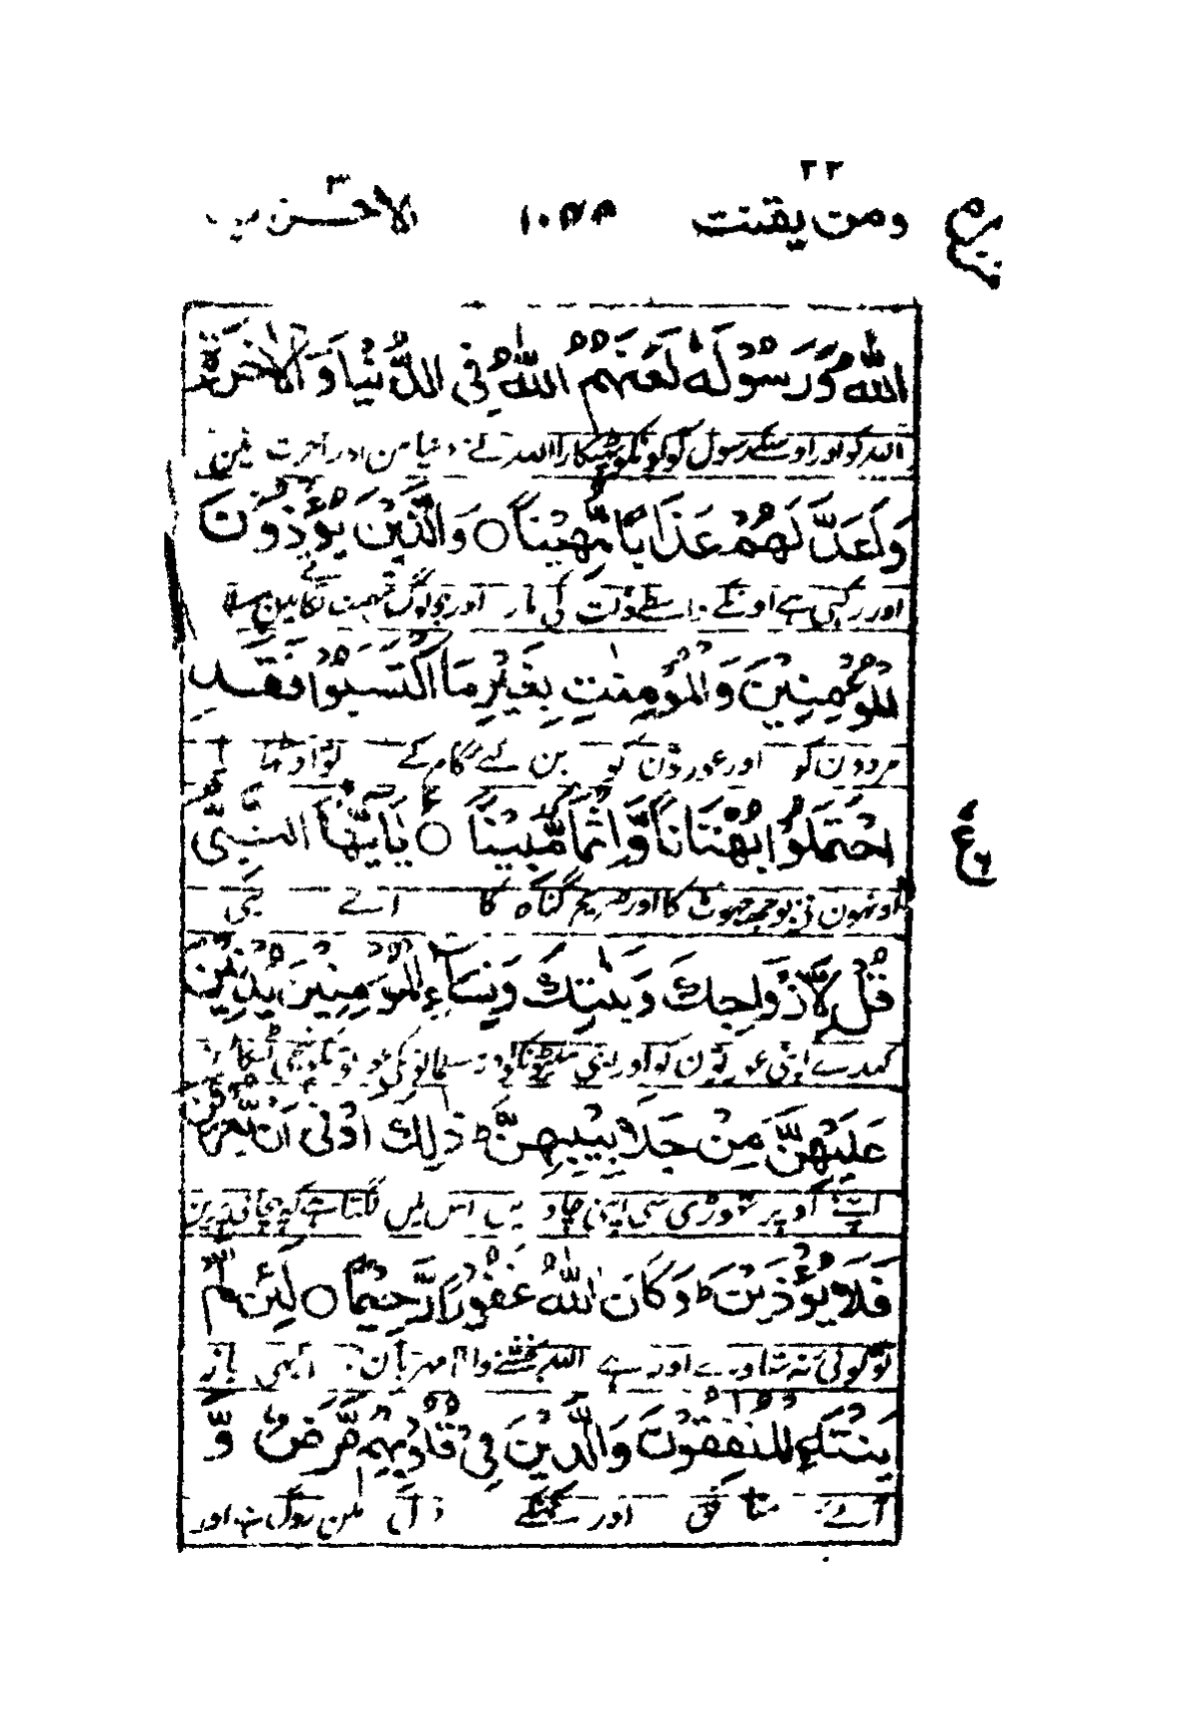 ۲۲
ومن يقنت ۱۰۵۸ الاحزاب ۳
اللّٰهَ وَرَسُوْلَهٗ لَعَنَهُمُ اللّٰهُ فِى الدُّنْيَا وَالْاٰخِرَةِ
اللہ کو اور اوسکے رسول کو اونکو پھٹکارا اللہ نے دنیا مین اور آخرت مین
وَاَعَدَّ لَهُمْ عَذَابًا مُّهِيْنًا ○ وَالَّذِيْنَ يُؤْذُوْنَ
اور رکھی ہے اونکے واسطے ذلت کی مار اور جو لوگ تہمت لگاتے ہین مسلمان
الْمُؤْمِنِيْنَ وَالْمُؤْمِنٰتِ بِغَيْرِ مَا اكْتَسَبُوْا فَقَدِ
مردون کو اور عورتون کو بن کئے کام کے تو اوٹھا
احْتَمَلُوْا بُهْتَانًا وَّاِثْمًا مُّبِيْنًا ○ يٰۤاَيُّهَا النَّبِىُّ
اونہون نے بوجھ جھوٹ کا اور صریح گناہ کا اے نبی
ع
قُلْ لِّاَزْوَاجِكَ وَبَنٰتِكَ وَنِسَآءِ الْمُؤْمِنِيْنَ يُدْنِيْنَ
کہدے اپنی عورتون کو اور اپنی بیٹیونکو اور مسلمانونکی عورتونکو نیچی لٹکا
عَلَيْهِنَّ مِنْ جَلَابِيْبِهِنَّ ط ذٰلِكَ اَدْنٰى اَنْ يُّعْرَفْنَ
اپنے اوپر تھوڑی سی اپنی چادرین اس مین لگتا ہے کہ پہچانی پڑین
فَلَا يُؤْذَيْنَ ط وَكَانَ اللّٰهُ غَفُوْرًا رَّحِيْمًا ○ لَئِنْ لَّمْ
تو کوئی نہ ستاوے اور ہے اللہ بخشنے والا مہربان ابھی باز
يَنْتَهِ الْمُنٰفِقُوْنَ وَالَّذِيْنَ فِىْ قُلُوْبِهِمْ مَّرَضٌ وَّ
آئے منافق اور جنکے دل مین روگ ہے اور